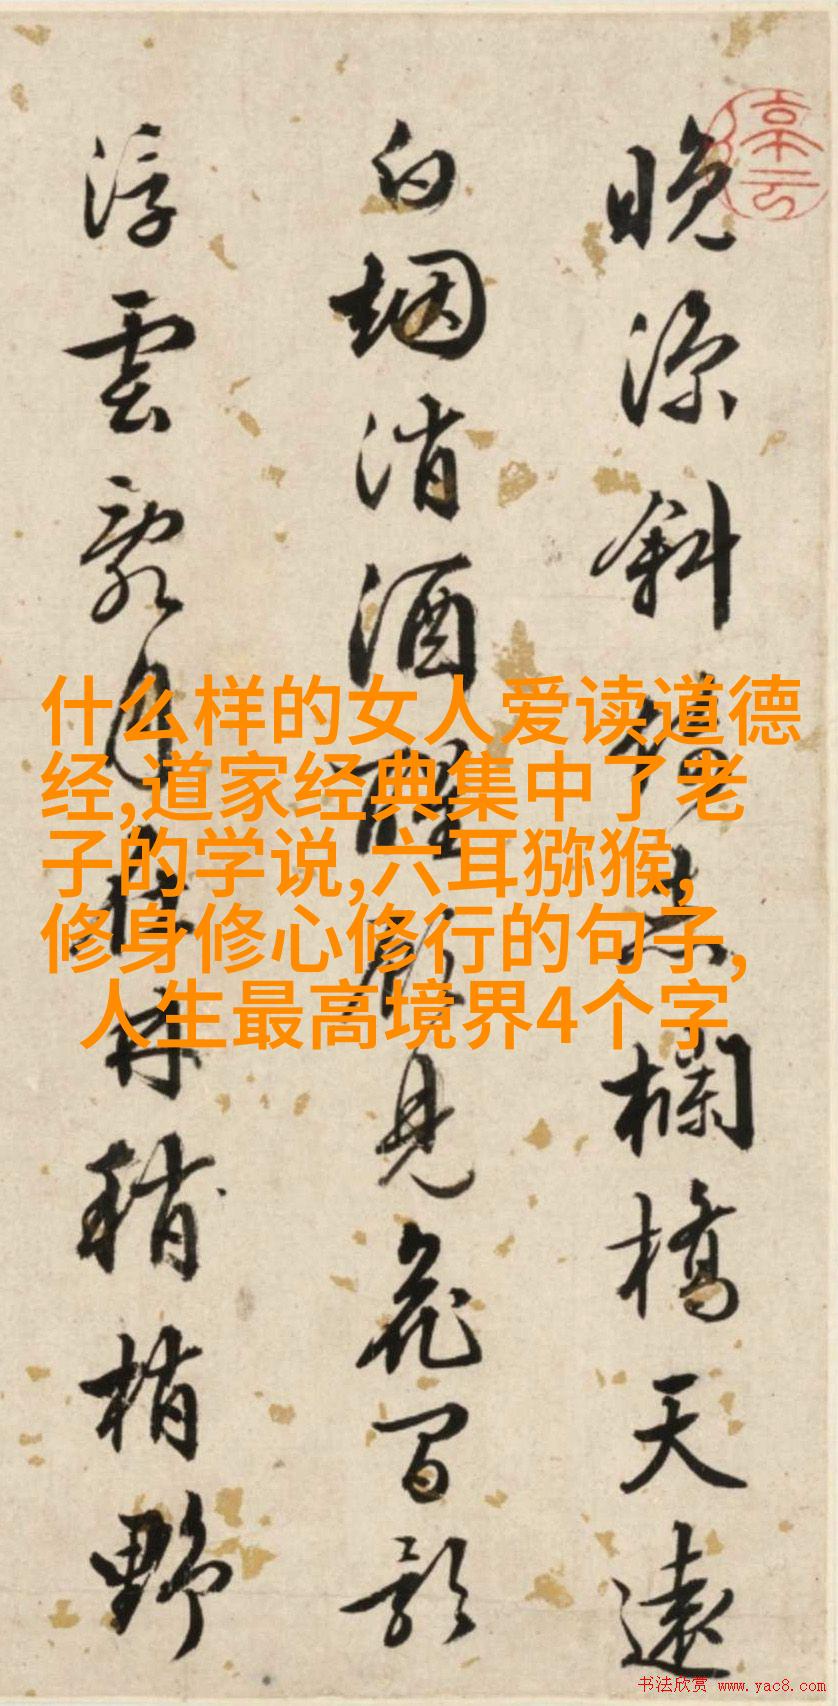 晚涼斜倚赤欄橋天遠
白烟消酒醒見花間影
浮雲月稍梢野
停云
什么样的女人爱读道德
经,道家经典集中了老
子的学说,六耳猕猴,
修身修心修行的句子,
人生最高境界4个字
书法欣赏 www.yac8.com